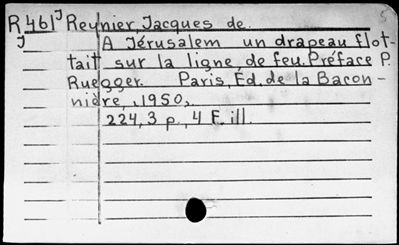 R461J Reynier, Jacques de.
J A Jérusalem un drapeau flot-
tait sur la ligne de feu. Préface P.
Ruegger. Paris, Éd. de la Bacon-
nière, 1950,
224, 3 p., 4 F. ill.